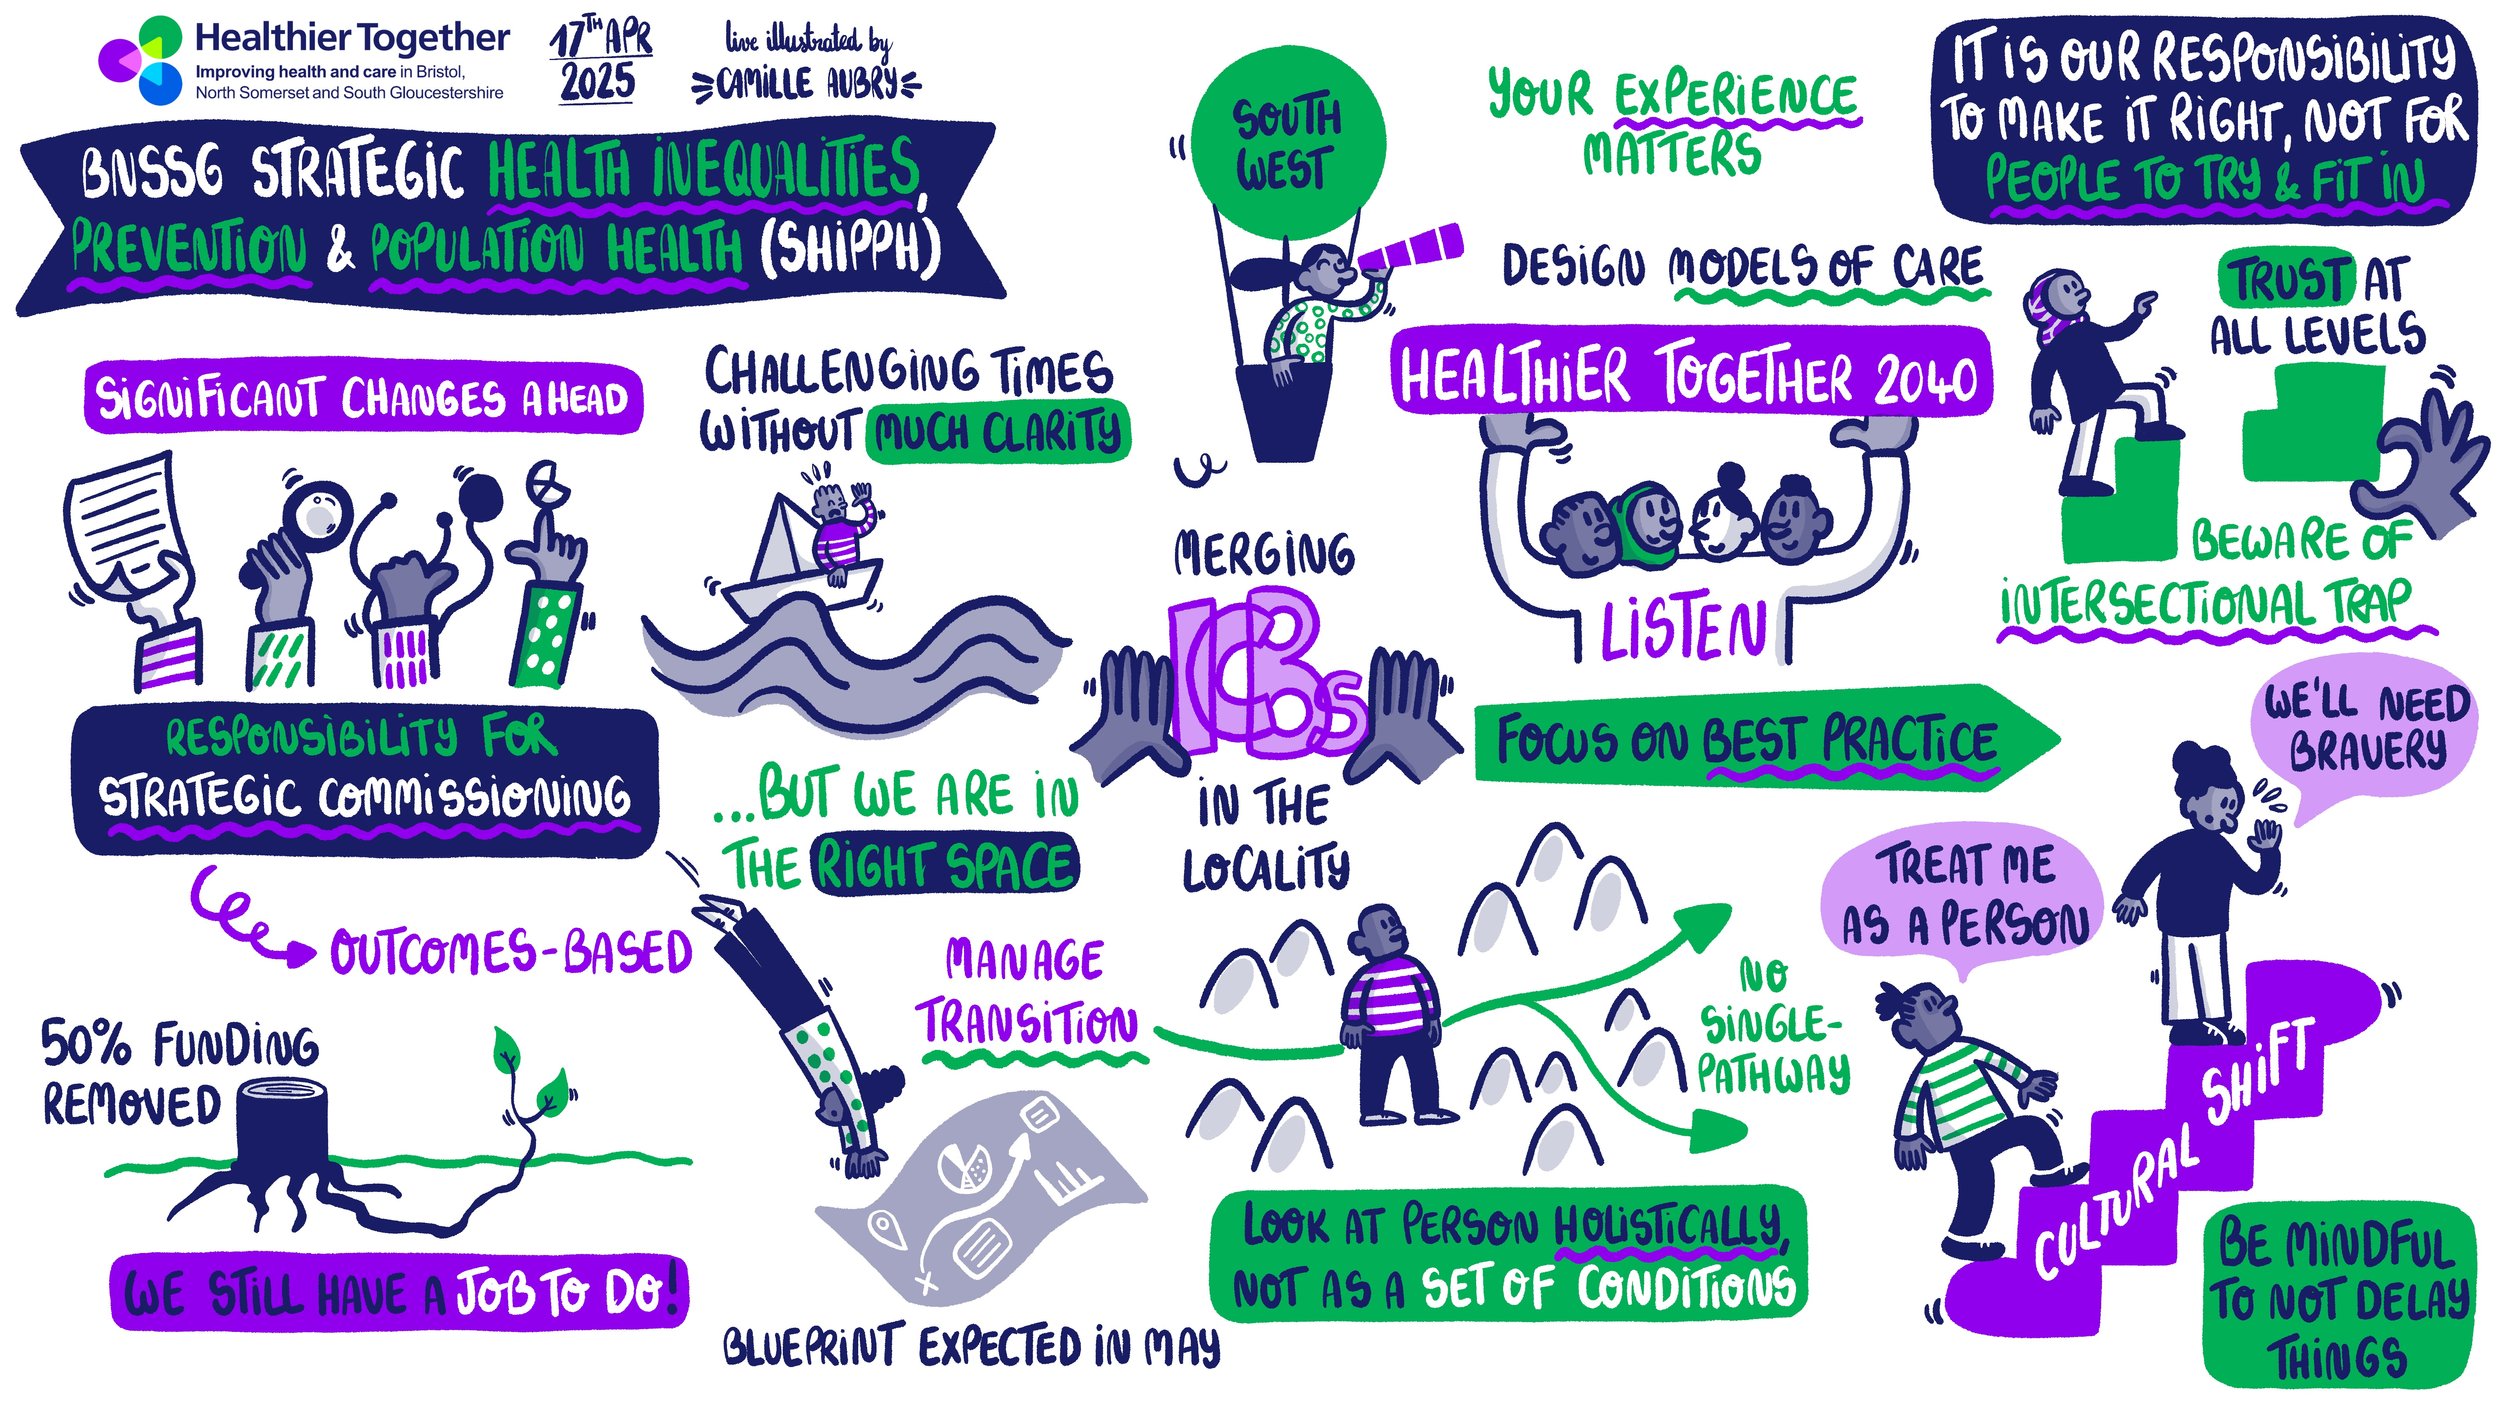 Healthier Together
Improving health and care in Bristol,
North Somerset and South Gloucestershire
17TH APR
2025
live illustrated by
CAMILLE AUBRY
BNSSG STRATEGIC HEALTH INEQUALITIES,
PREVENTION & POPULATION HEALTH (SHIPPH)
SIGNIFICANT CHANGES AHEAD
RESPONSIBILITY FOR
STRATEGIC COMMISSIONING
OUTCOMES-BASED
50% FUNDING
REMOVED
WE STILL HAVE A JOB TO DO!
CHALLENGING TIMES
WITHOUT MUCH CLARITY
...BUT WE ARE IN
THE RIGHT SPACE
MANAGE
TRANSITION
BLUEPRINT EXPECTED IN MAY
SOUTH
WEST
MERGING
ICBs
IN THE
LOCALITY
YOUR EXPERIENCE
MATTERS
DESIGN MODELS OF CARE
HEALTHIER TOGETHER 2040
LISTEN
FOCUS ON BEST PRACTICE
NO
SINGLE-
PATHWAY
LOOK AT PERSON HOLISTICALLY,
NOT AS A SET OF CONDITIONS
IT IS OUR RESPONSIBILITY
TO MAKE IT RIGHT, NOT FOR
PEOPLE TO TRY & FIT IN
TRUST AT
ALL LEVELS
BEWARE OF
INTERSECTIONAL TRAP
WE'LL NEED
BRAVERY
TREAT ME
AS A PERSON
CULTURAL SHIFT
BE MINDFUL
TO NOT DELAY
THINGS